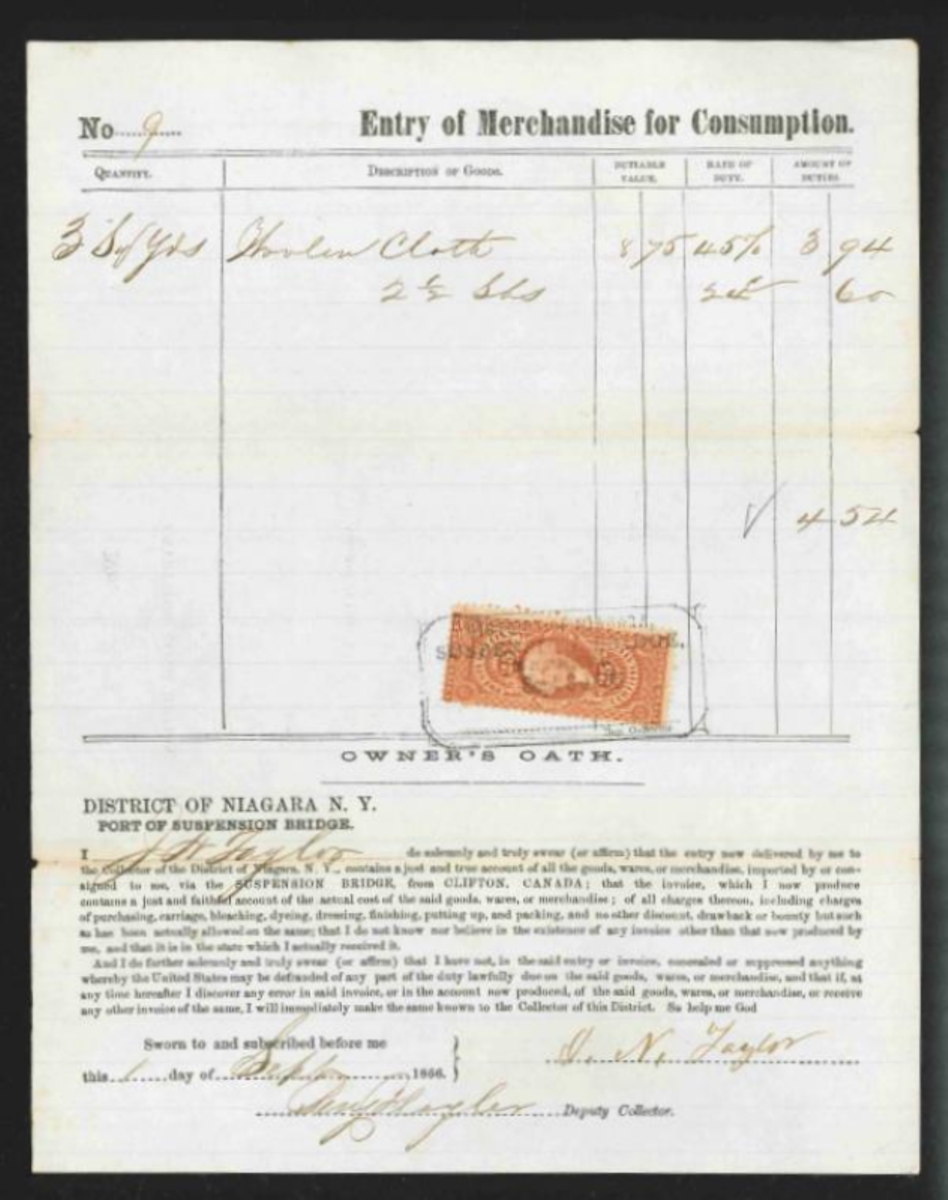 No 9 Entry of Merchandise for Consumption.
QUANTITY. DESCRIPTION OF GOODS. DUTIABLE VALUE. RATE OF DUTY. AMOUNT OF DUTIES.
3 Sq Yds Woolen Cloth 8 75 45% 3 94
2 1/2 Lbs 24c 60
4 54
OWNER'S OATH.
DISTRICT OF NIAGARA N. Y.
PORT OF SUSPENSION BRIDGE.
I J. N. Taylor do solemnly and truly swear (or affirm) that the entry now delivered by me to
the Collector of the District of Niagara, N. Y., contains a just and true account of all the goods, wares, or merchandise, imported by or con-
signed to me, via the SUSPENSION BRIDGE, from CLIFTON, CANADA; that the invoice, which I now produce
contains a just and faithful account of the actual cost of the said goods, wares, or merchandise; of all charges thereon, including charges
of purchasing, carriage, bleaching, dyeing, dressing, finishing, putting up, and packing, and no other discount, drawback or bounty but such
as has been actually allowed on the same; that I do not know nor believe in the existence of any invoice other than that now produced by
me, and that it is in the state which I actually received it.
And I do further solemnly and truly swear (or affirm) that I have not, in the said entry or invoice, concealed or suppressed anything
whereby the United States may be defrauded of any part of the duty lawfully due on the said goods, wares, or merchandise, and that if, at
any time hereafter I discover any error in said invoice, or in the account now produced, of the said goods, wares, or merchandise, or receive
any other invoice of the same, I will immediately make the same known to the Collector of this District. So help me God
Sworn to and subscribed before me
J. N. Taylor
this 1 day of Septr 1866.
Deputy Collector.